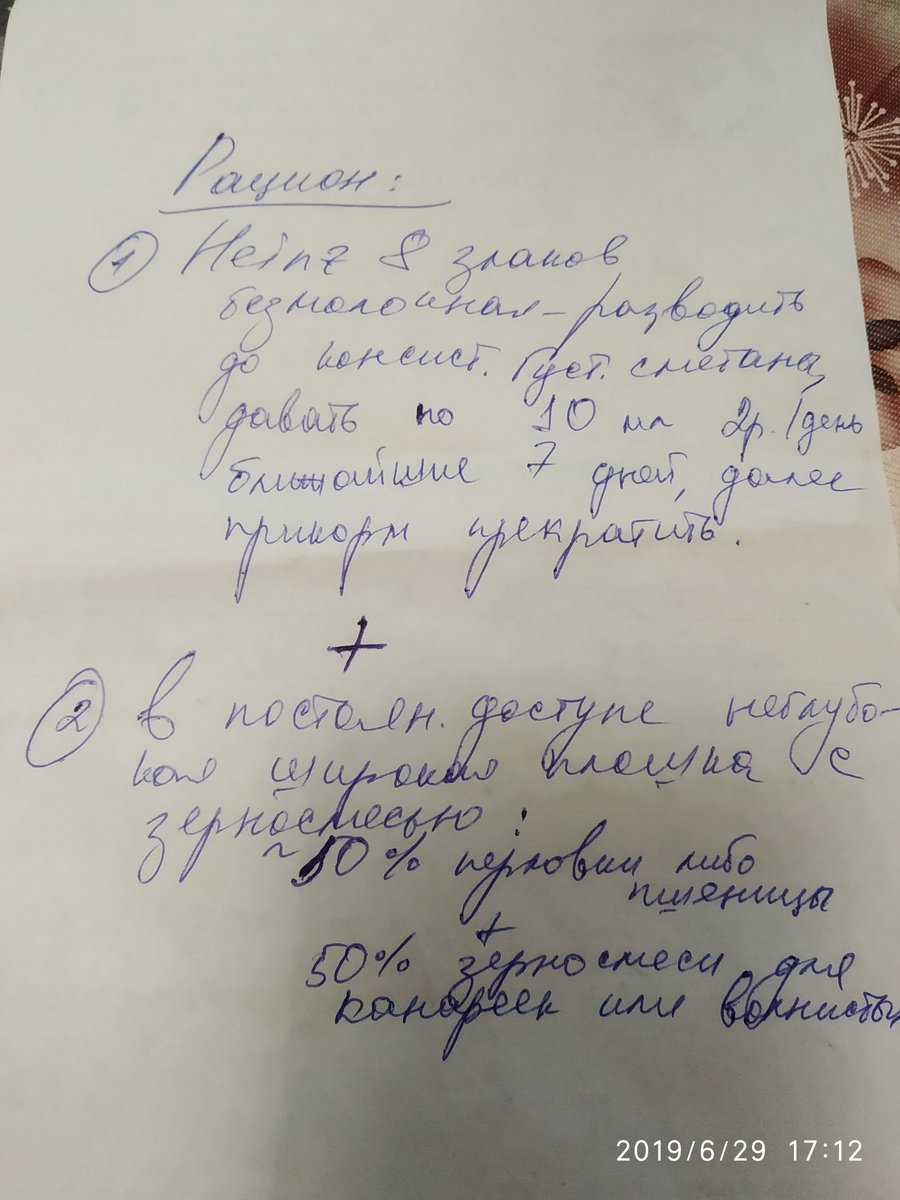 Рацион:
① Heinz 8 злаков
безмолочная – разводить
до консист. густ. сметаны,
давать по 10 мл 2р./день
ближайшие 7 дней, далее
прикорм прекратить.
+
② В постоян. доступе неглубо-
кая широкая плошка с
зерносмесью:
~50% перловки либо
пшеницы
+
50% зерносмеси для
канареек или волнистых
2019/6/29 17:12